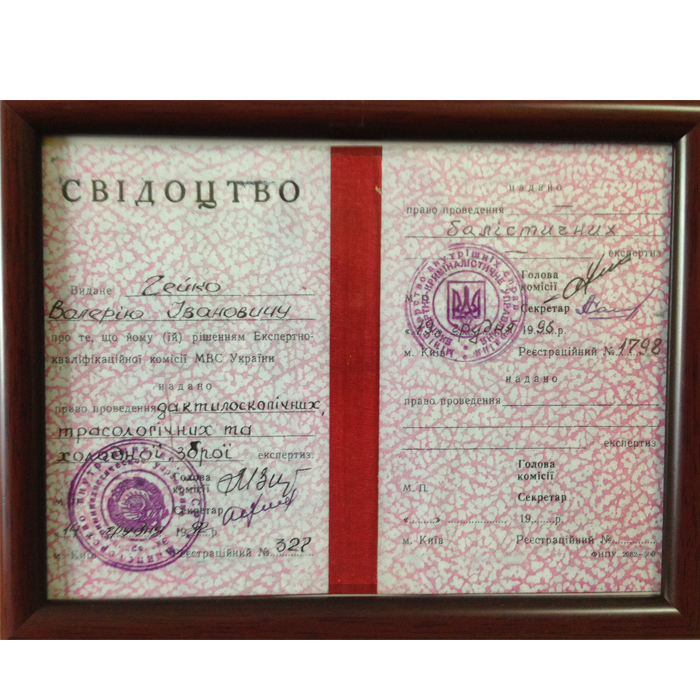 СВІДОЦТВО
Видане Чейко
Валерію Івановичу
про те, що йому (їй) рішенням Експертно-
кваліфікаційної комісії МВС України
надано
право проведення дактилоскопічних,
трасологічних та
холодної зброї експертиз.
Голова
комісії
М.
Секретар
14 грудня 19
м. Київ Реєстраційний № 322
надано
право проведення
балістичних
експертиз
Голова
комісії
Секретар
« 19 » грудня 1995.р.
м. Київ Реєстраційний №1798
надано
право проведення
експертиз
Голова
комісії
М. П.
Секретар
«.......» 19.......р.
м. Київ Реєстраційний №